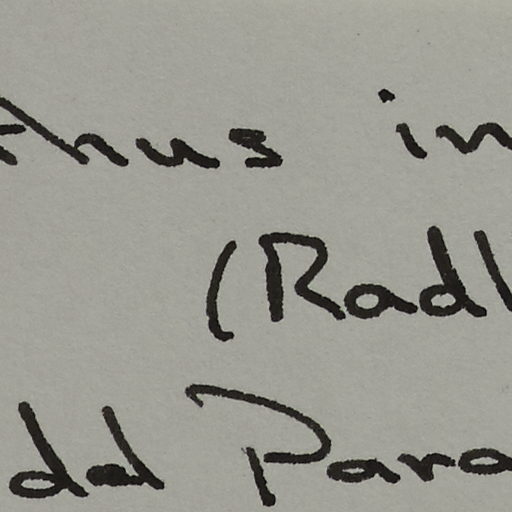 thus in
(Radl
del Para